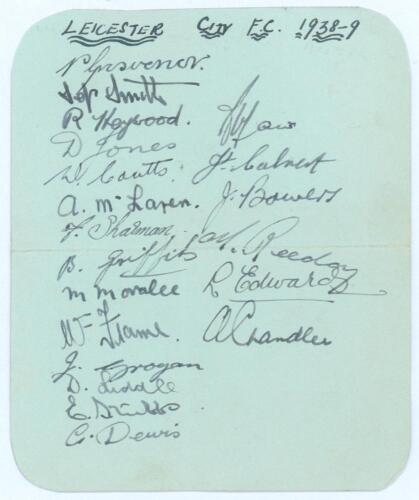 LEICESTER CITY F.C. 1938-9
P Grosvenor.
Sep Smith
R Heywood.
D Jones
W. Coutts.
A. McLaren.
F. Sharman.
B. Griffiths
M Moralee
Wm Frame
J. Grogan
D. Liddle
E. Stubbs
G. Dewis
Jh Calvert
J. Bowers
M. Reeday
R Edwards
A Chandler